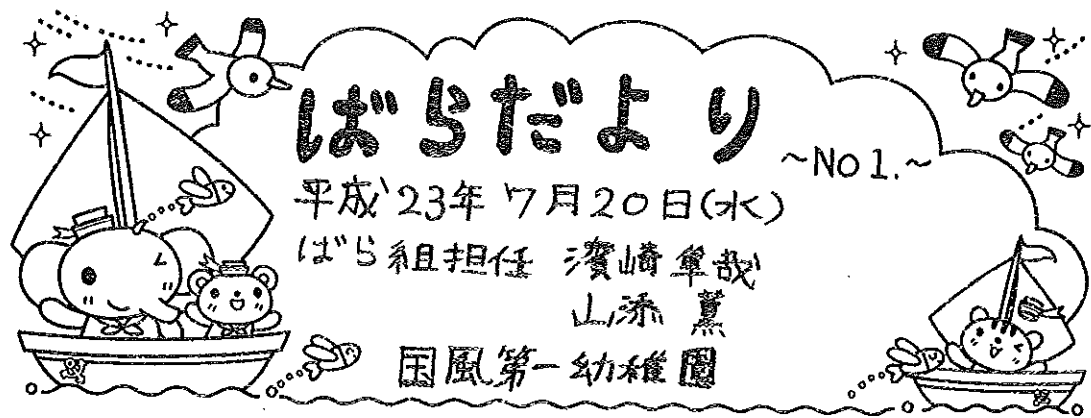 ばらだより
~NO1.~
平成23年7月20日(水)
ばら組担任 濱崎隼哉
山添 薫
国風第一幼稚園